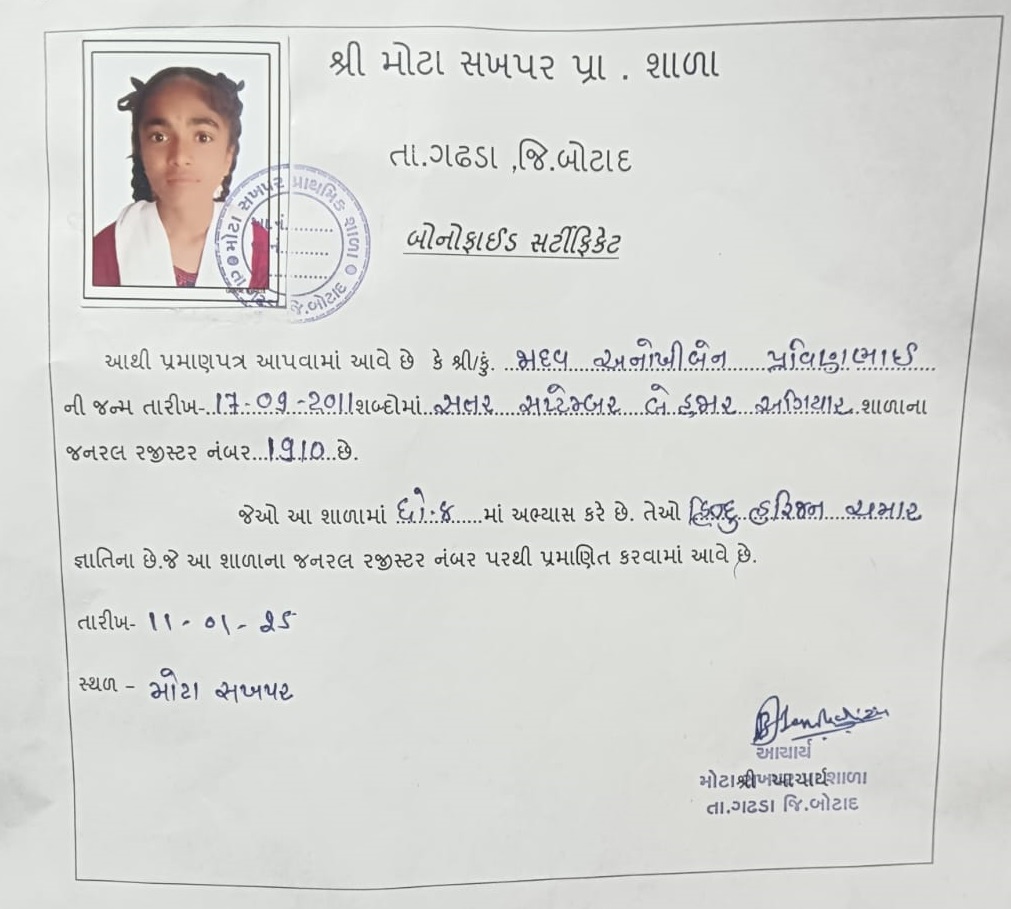 શ્રી મોટા સખપર પ્રા . શાળા
તા.ગઢડા ,જિ.બોટાદ
બોનોફાઈડ સર્ટીફિકેટ
મોટા સખપર પ્રાથમિક શાળા
જિ.બોટાદ
આથી પ્રમાણપત્ર આપવામાં આવે છે કે શ્રી/કું. અનોખીબેન પ્રવિણભાઈ
ની જન્મ તારીખ-.17-09-2011શબ્દોમાં સત્તર સપ્ટેમ્બર બે હજાર અગિયાર.શાળાના
જનરલ રજીસ્ટર નંબર...1910..છે.
જેઓ આ શાળામાં ધો-૪.....માં અભ્યાસ કરે છે. તેઓ હિન્દુ હરિજન ચમાર
જ્ઞાતિના છે.જે આ શાળાના જનરલ રજીસ્ટર નંબર પરથી પ્રમાણિત કરવામાં આવે છે.
તારીખ- ૧૧-૦૧-૨૫
સ્થળ - મોટા સખપર
આચાર્ય
તા.ગઢડા જિ.બોટાદ